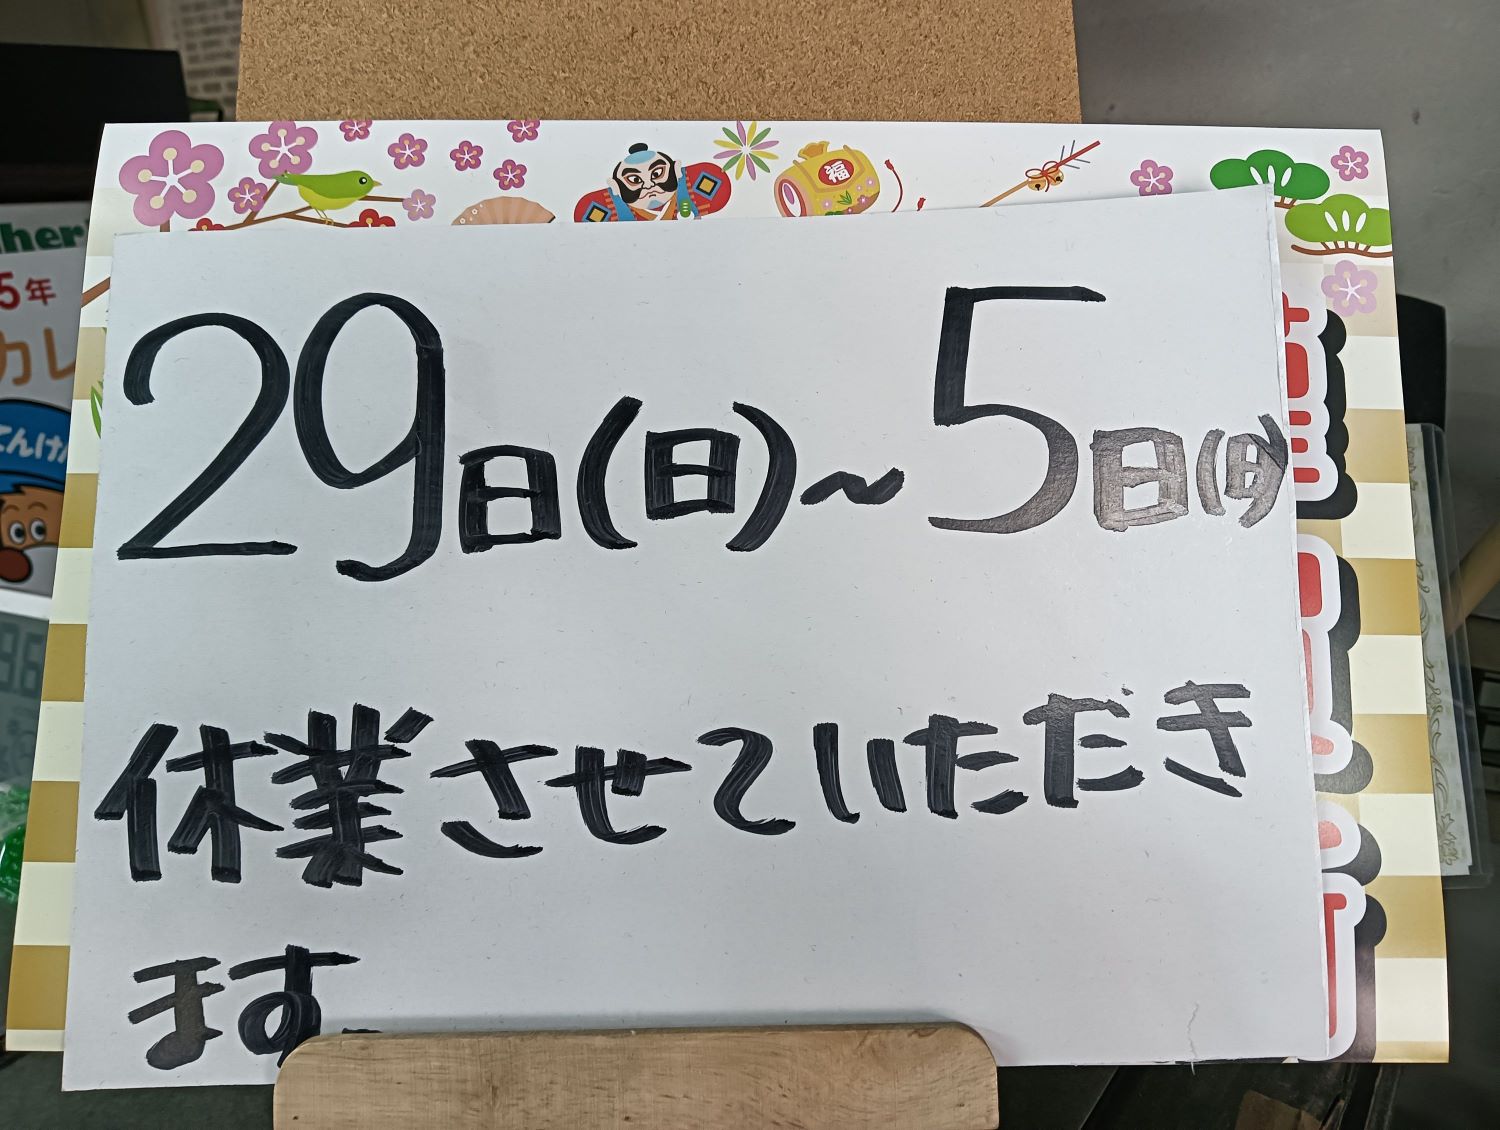 29日(日)～5日(日)
休業させていただき
ます
福
her
5年
カレ
てんけ
96